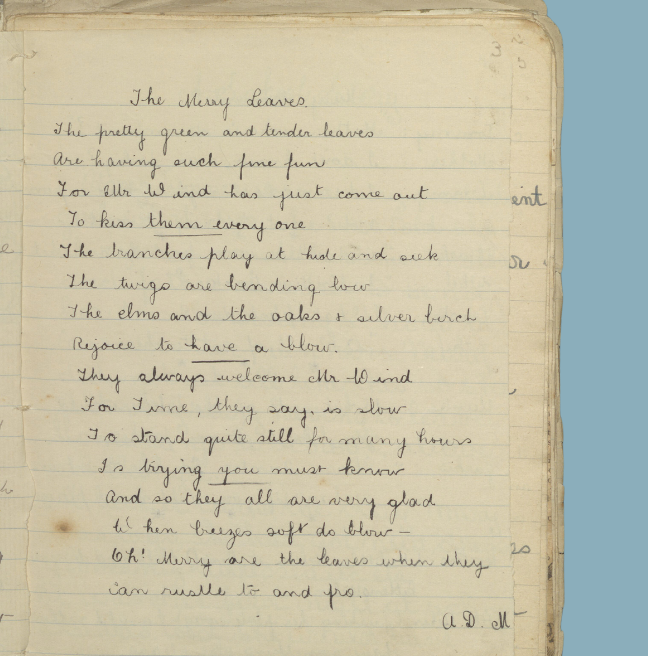 The Merry Leaves.
The pretty green and tender leaves
Are having such fine fun
For Mr Wind has just come out
To kiss them every one
The branches play at hide and seek
The twigs are bending low
The elms and the oaks & silver birch
Rejoice to have a blow.
They always welcome Mr Wind
For Time, they say, is slow
To stand quite still for many hours
Is trying you must know
And so they all are very glad
When breezes soft do blow –
Oh! Merry are the leaves when they
can rustle to and fro.
A. D. M